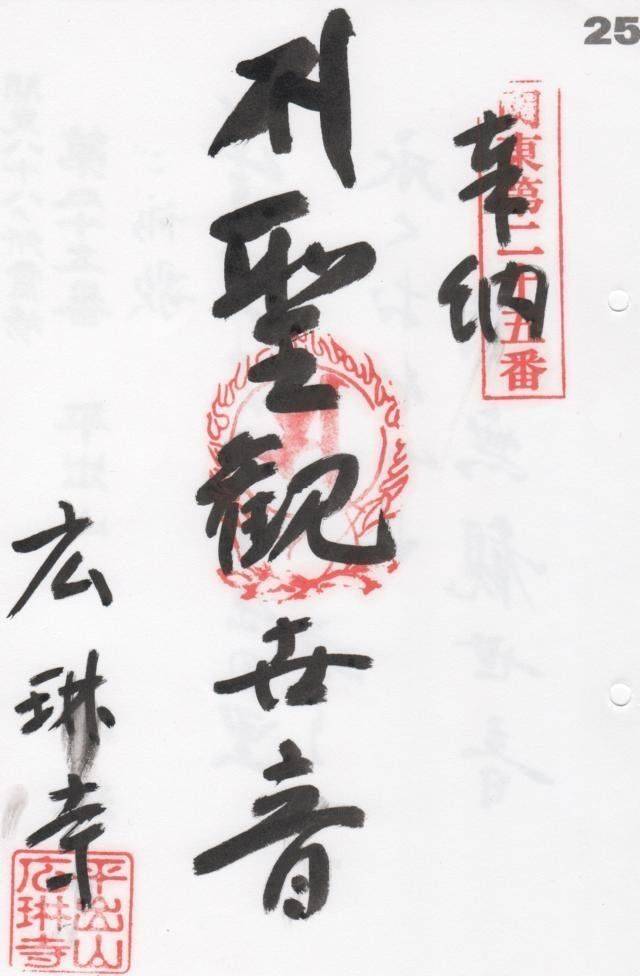 25
関東第二十五番
奉納
聖觀世音
広琳寺
平出山
広琳寺